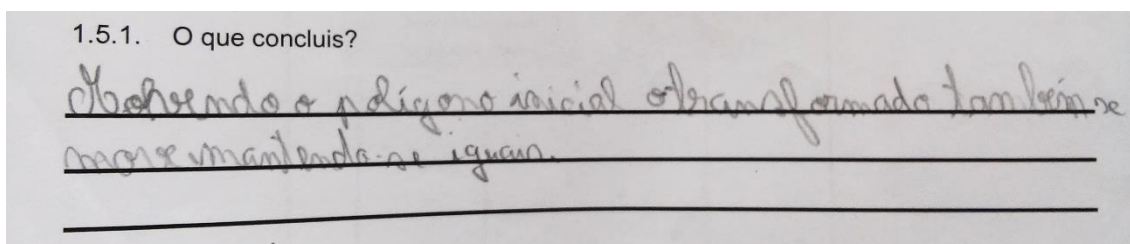 1.5.1. O que concluis?
Movendo o polígono inicial o transformado também se
move mantendo-se iguais.